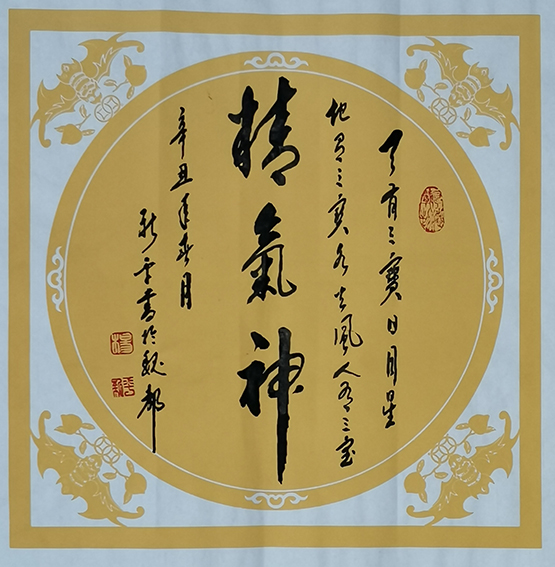 天有三寶日月星
地有三寶水火風人有三宝
精氣神
辛丑年春月
新平書於魏都
楊